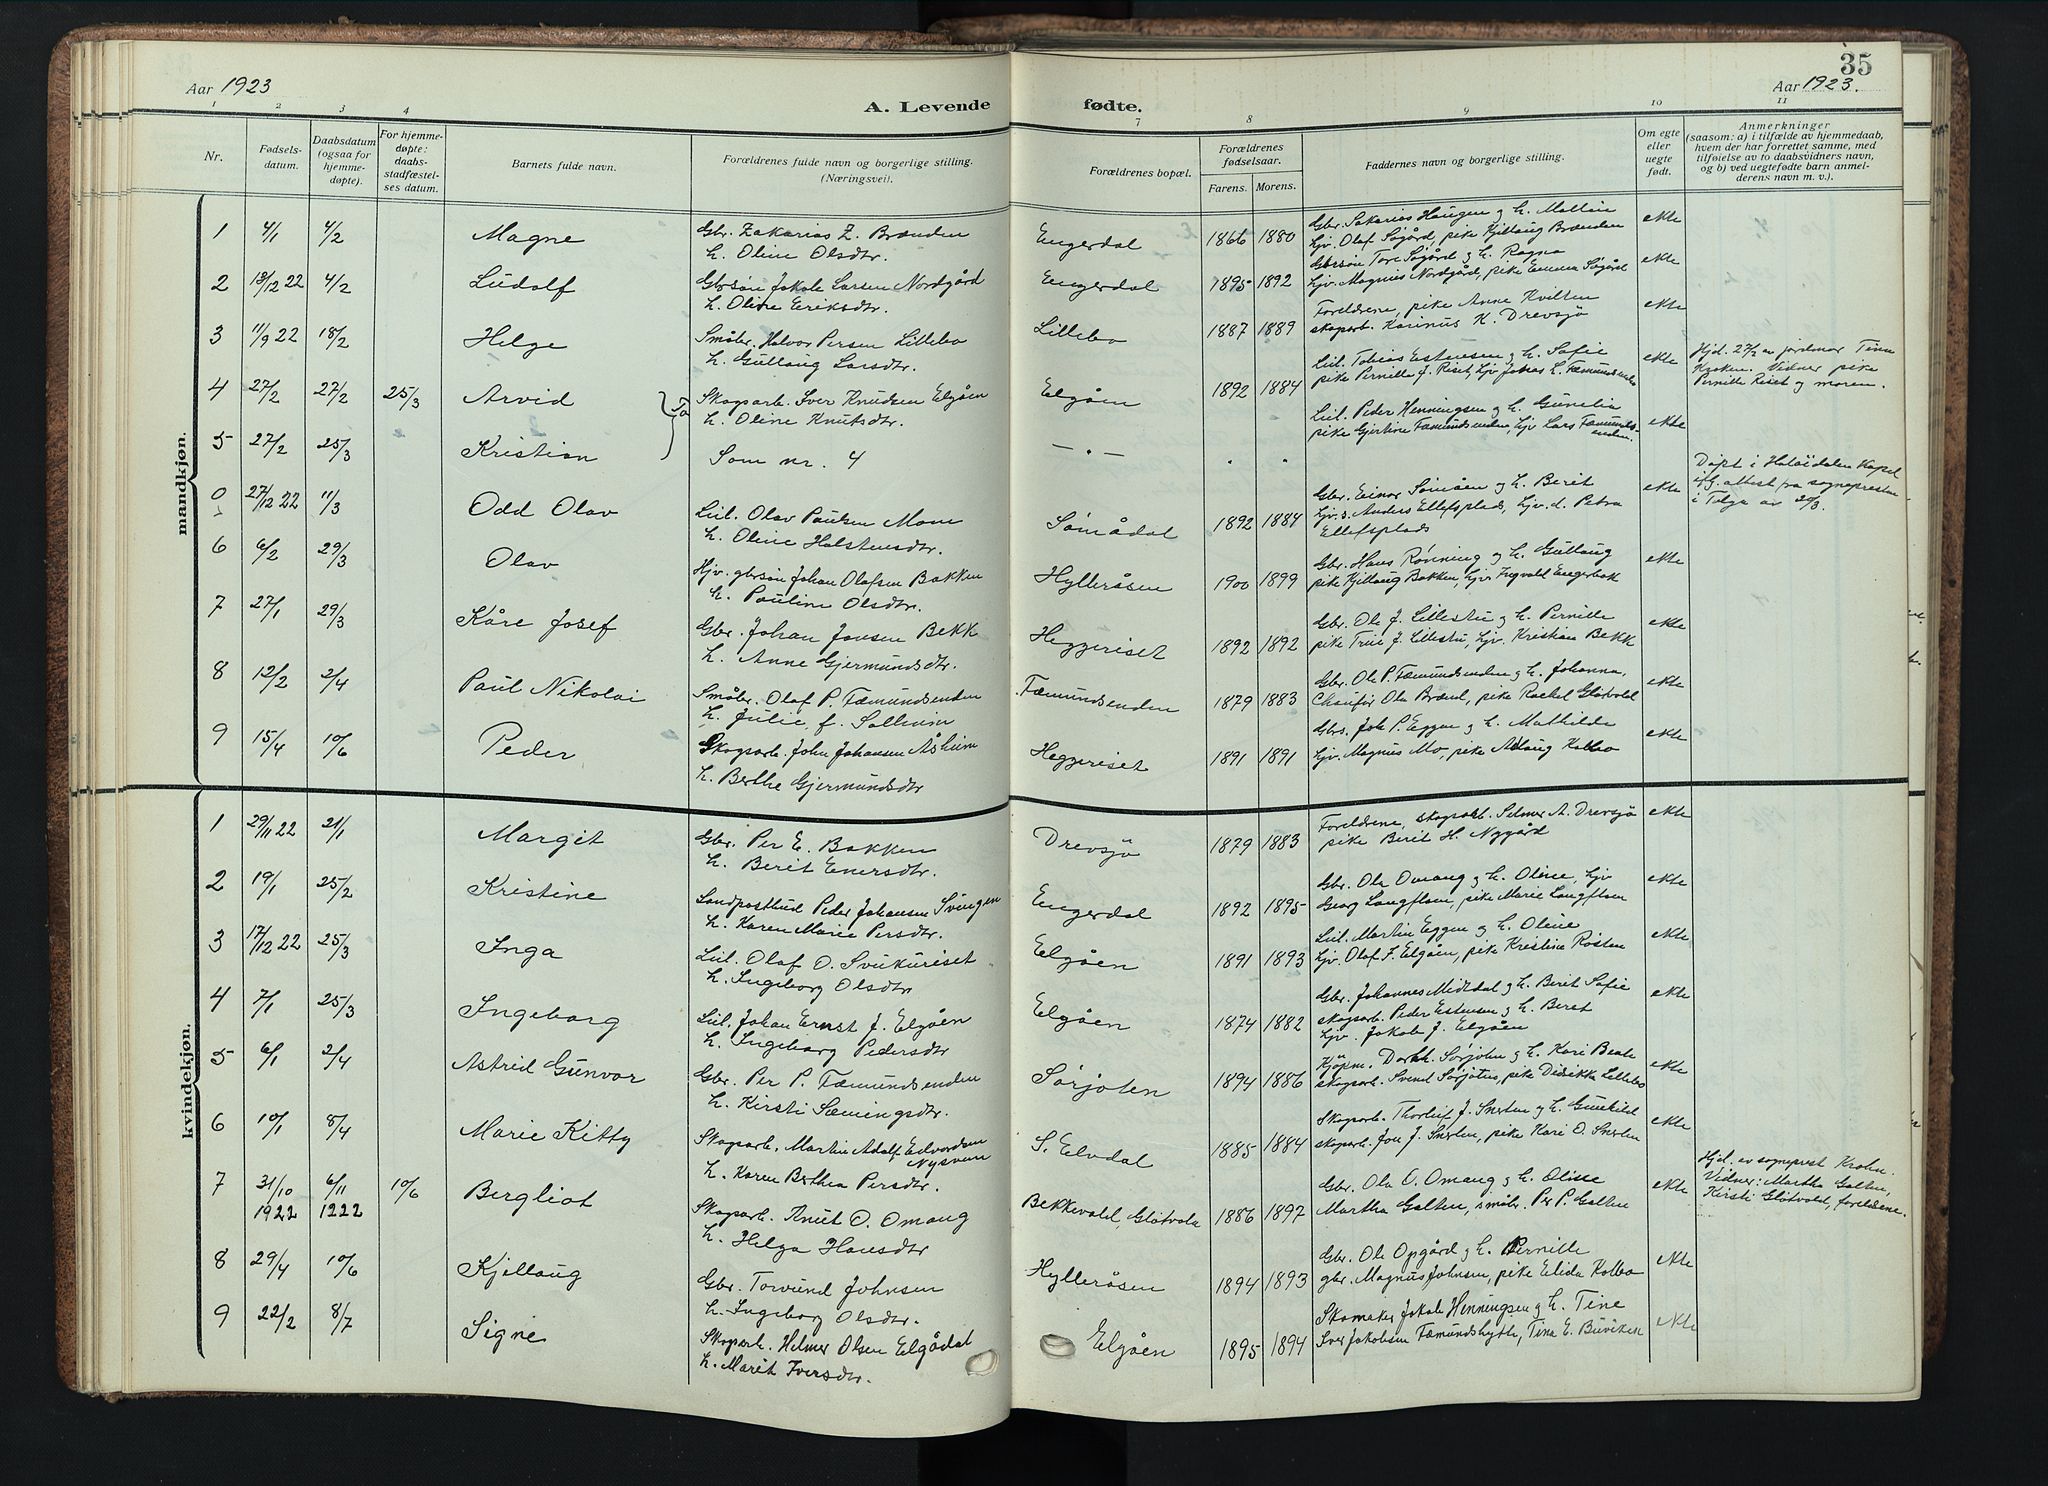 Aar 1923
A. Levende fødte.
35
Aar 1923.
1 2 3 4 7 8 9 10 11
Nr.
Fødselsdatum.
Daabsdatum (ogsaa for hjemmedøpte).
For hjemmedøpte: daabsstadfæstelses datum.
Barnets fulde navn.
Forældrenes fulde navn og borgerlige stilling. (Næringsvei).
Forældrenes bopæl.
Forældrenes fødselsaar.
Farens. Morens.
Faddernes navn og borgerlige stilling.
Om egte eller uegte født.
Anmerkninger
(saasom: a) i tilfælde av hjemmedaab, hvem der har forrettet samme, med tilføielse av to daabsvidners navn, og b) ved uegtefødte barn anmelderens navn m. v.).
mandkjøn.
1 4/1 4/2 Magne Gbr. Zakarias Z. Brænden h. Oline Olsdtr. Engerdal 1866 1880 Gbr. Sakarias Haugen og h. Mallin hjv. Olaf Søgård, pike Kjellaug Brænden ekte
2 18/12 22 4/2 Ludolf Gbrsøn Jakob Larsen Nordgård h. Oline Eriksdtr. Engerdal 1895 1892 Gbrsøn Tore Søgård og h. Ragna hjv. Magnus Nordgård, pike Emma Søgård ekte
3 11/9 22 18/2 Helge Småbr. Halvor Persen Lillebo h. Gullaug Larsdtr. Lillebo 1887 1889 Foreldrene, pike Anne Kvilten skogarb. Karinus K. Drevsjø ekte
4 27/2 27/2 25/3 Arvid Skogsarb. Iver Knudsen Elgåen h. Oline Knutsdtr. Elgåen 1892 1884 Lul. Tobias Estensen og h. Sofie pike Pernille J. Riset, hjv Johas L. Fæmundsenden ekte Hjd. 27/2 av jordmor Tina Kroken. Vidner pike Pernille Riset og moren.
5 27/2 25/3 Kristian Som nr. 4 – " – " " Lul. Peder Henningsen og h. Gunelia pike Gjertine Fæmundsenden, hjv Lars Fæmundsenden. ekte
0 27/12 22 11/3 Odd Olav Lul. Olav Paulsen Moen h. Oline Halstensdtr. Sømådal 1892 1884 Gbr. Einar Sømåen og h. Berit hjv.s. Anders Ellefsplads, hjv.d. Petra Ellefsplads ekte Døpt i Holøidalen Kapel ifg. attest fra sognepresten i Tolga av 20/3.
6 6/2 29/3 Olav Hjv. gbrsøn Johan Olafsen Bakken h. Pauline Olsdtr. Hylleråsen 1900 1899 Gbr. Hans Rønning og h. Gullaug pike Kjellaug Bakken, hjv Ingvald Engerbak ekte
7 27/1 29/3 Kåre Josef Gbr. Johan Jonsen Bekk h. Anne Gjermundsdtr. Heggeriset 1892 1892 Gbr. Ole J. Lillestu og h. Pernille pike Trine J. Lillestu, hjv. Kristian Bekk ekte
8 12/2 2/4 Paul Nikolai Småbr. Olaf P. Fæmundsenden h. Julie, f. Solheim Fæmundsenden 1879 1883 Gbr. Ole P. Fæmundsenden og h. Johanna, Chaufør Ola Brænd, pike Rachel Gløtvold ekte
9 15/4 10/6 Peder Skogsarb. John Johansen Åsheim h. Berthe Gjermundsdtr Heggeriset 1891 1891 Gbrs. Joh P. Eggen og h. Mathilde hjv. Magnus Mo, pike Aslaug Kolbo ekte
kvindekjøn.
1 29/11 22 21/1 Margit Gbr. Per E. Bakken h. Berit Enersdtr. Drevsjø 1879 1883 Foreldrene, skogarb. Selmer A. Drevsjø pike Berit H. Nygård ekte
2 19/1 25/2 Kristine Landpostbud Peder Johansen Svingen h. Karen Marie Persdtr. Engerdal 1892 1895 Gbr. Ole Omang og h. Oline, hjv Georg Langfloen, pike Marie Langfloen ekte
3 17/12 22 25/3 Inga Lul. Olaf O. Svukuriset h. Ingeborg Olsdtr Elgåen 1891 1893 Lul. Martin Eggen og h. Oline hjv. Olaf J. Elgåen, pike Kristine Røsten ekte
4 7/1 25/3 Ingeborg Lul. Johan Ernst J. Elgåen h. Ingeborg Pedersdtr Elgåen 1874 1882 Gbr. Johannes Midtdal og h. Berit Sofie skogsarb. Peder Estensen og h. Beret hjv. Jakob J. Elgåen ekte
5 6/1 2/4 Astrid Gunvor Gbr. Per P. Fæmundsenden h. Kirsti Sæmingsdtr. Sørjoten 1894 1886 Kjøpm. Sørjoten og h. Kari Beate skogsarb. Svend Sørjoten, pike Didrikka Lillebo ekte
6 10/1 8/4 Marie Kitty Skogsarb. Martin Adolf Edvardsen Nysveen h. Karen Berthea Persdtr. S. Elvdal 1885 1884 Skogsarb. Thorleif J. Snerten og h. Gunhild skogsarb. Jon J. Snerten, pike Kari O. Snerten ekte
7 31/10 1922 6/11 1222 10/6 Bergliot Skogsarb. Knut O. Omang h. Helga Hansdtr Bekkevold, Gløtvola 1886 1897 Gbr. Ola O. Omang og h. Olisse Martha Galten, småbr. Per P. Galten ekte Hjd. av sogneprest Krohn. Vidner: Martha Galten, Kirsti Gløtvold, foreldrene.
8 29/4 10/6 Kjellaug Gbr. Torvund Johnsen h. Ingeborg Olsdtr. Hylleråsen 1894 1893 Gbr. Ole Opgård og h. Pernille gbr. Magnus Johnsen, pike Elida Kolbo ekte
9 22/2 8/7 Signe Skogarb. Helmer Olsen Elgådal h. Marit Iversdtr. Elgåen 1895 1894 Skomaker Jakob Henningsen og h. Tine Iver Jakobsen Fæmundshytte, Tina E. Buviken ekte